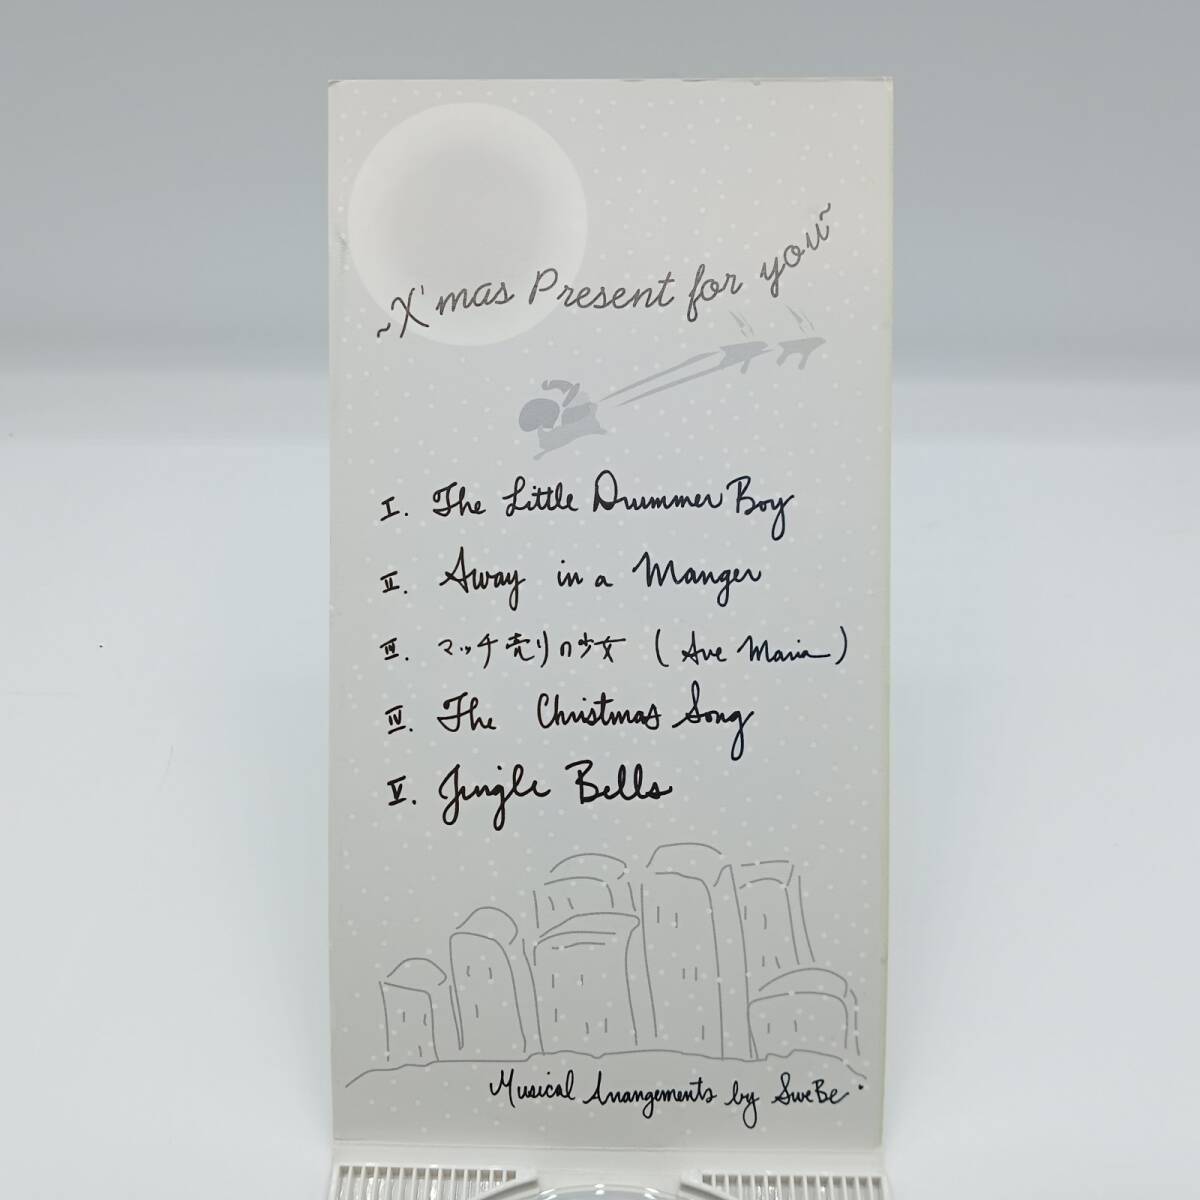 ~X'mas Present for you~
I. The Little Drummer Boy
II. Away in a Manger
III. マッチ売りの少女 (Ave Maria)
IV. The Christmas Song
V. Jingle Bells
Musical Arrangements by SweBe.